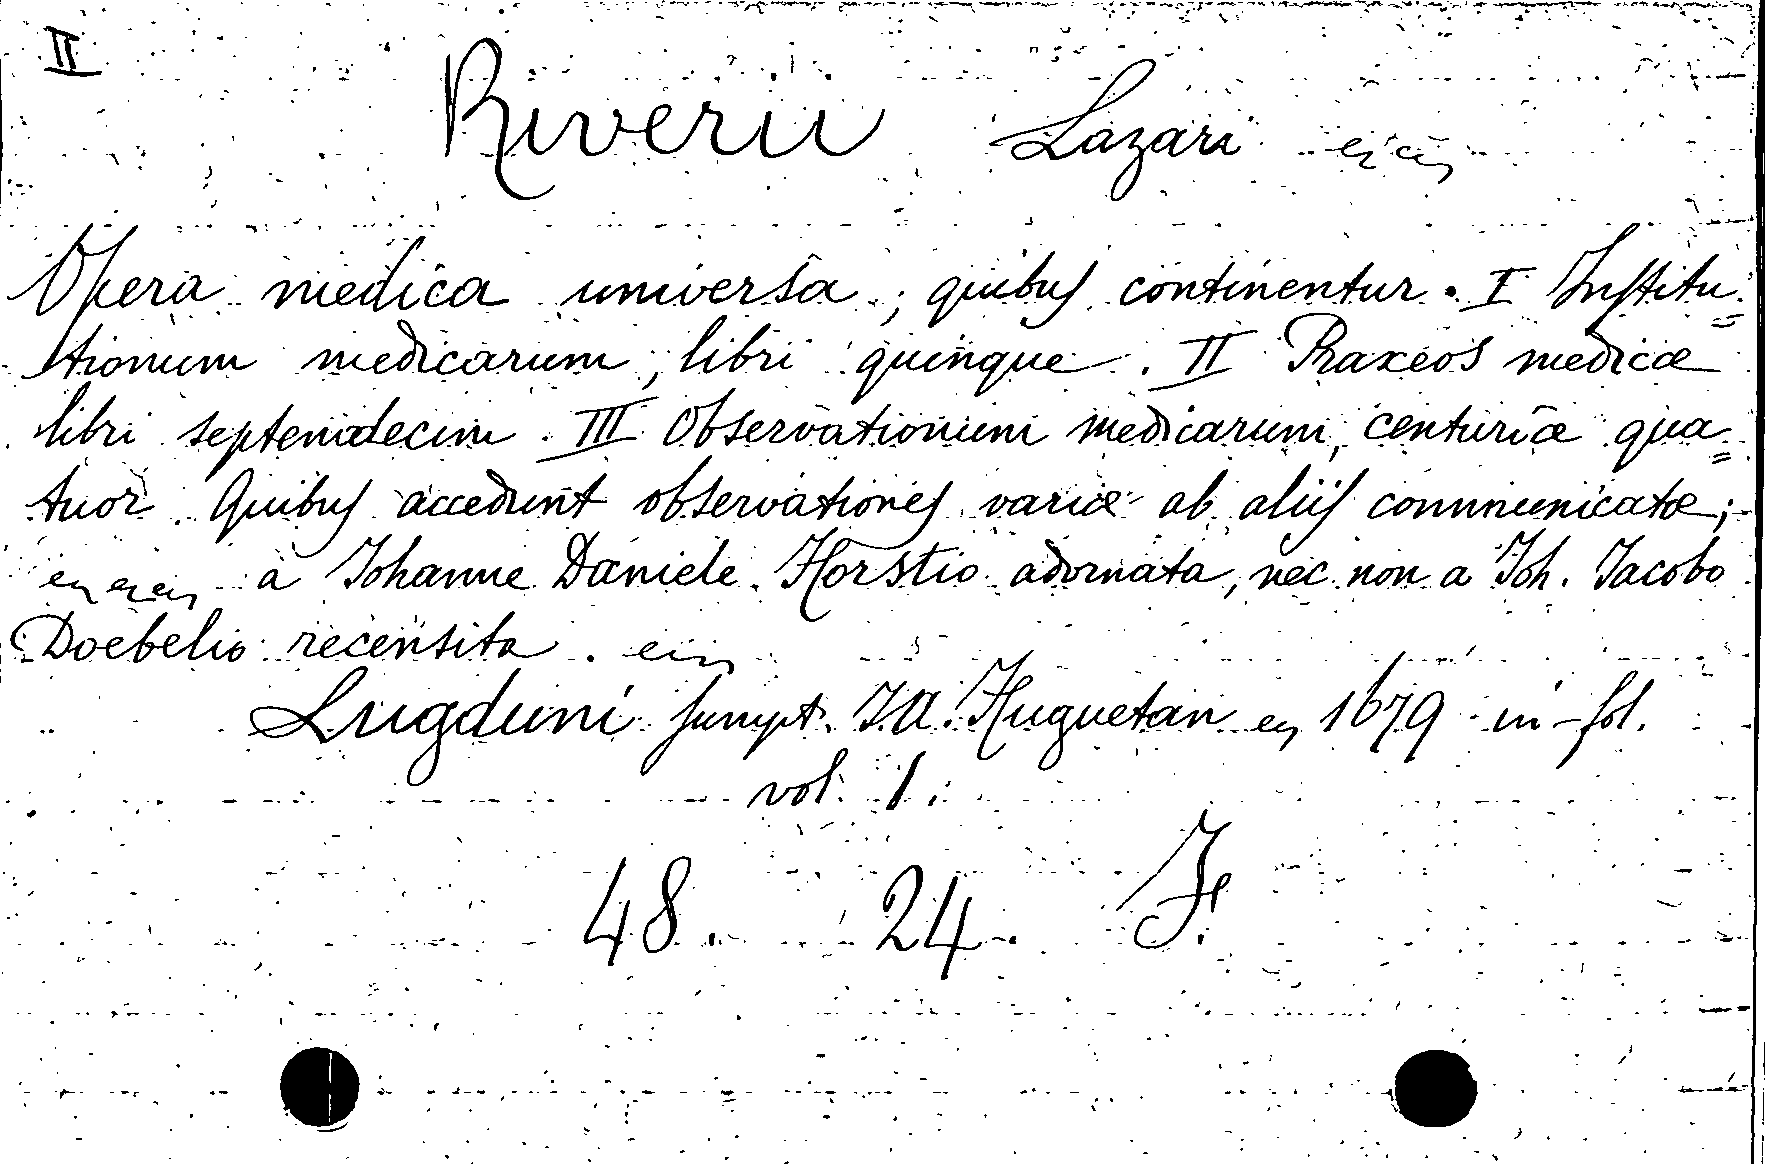 II
Riverii Lazari
Opera medica universa, quibus continentur. I Institu=
tionum medicarum, libri quinque. II Praxeos medicæ
libri septemdecim. III Observationum medicarum, centuriæ qua=
tuor. Quibus accedunt observationes variæ ab aliis communicatæ;
a Johanne Daniele Horstio adornata, nec non a Joh. Jacobo
Doebelio recensita.
Lugduni sumpt. J. A. Huguetan 1679 in-fol.
vol. 1.
48. 24. F.